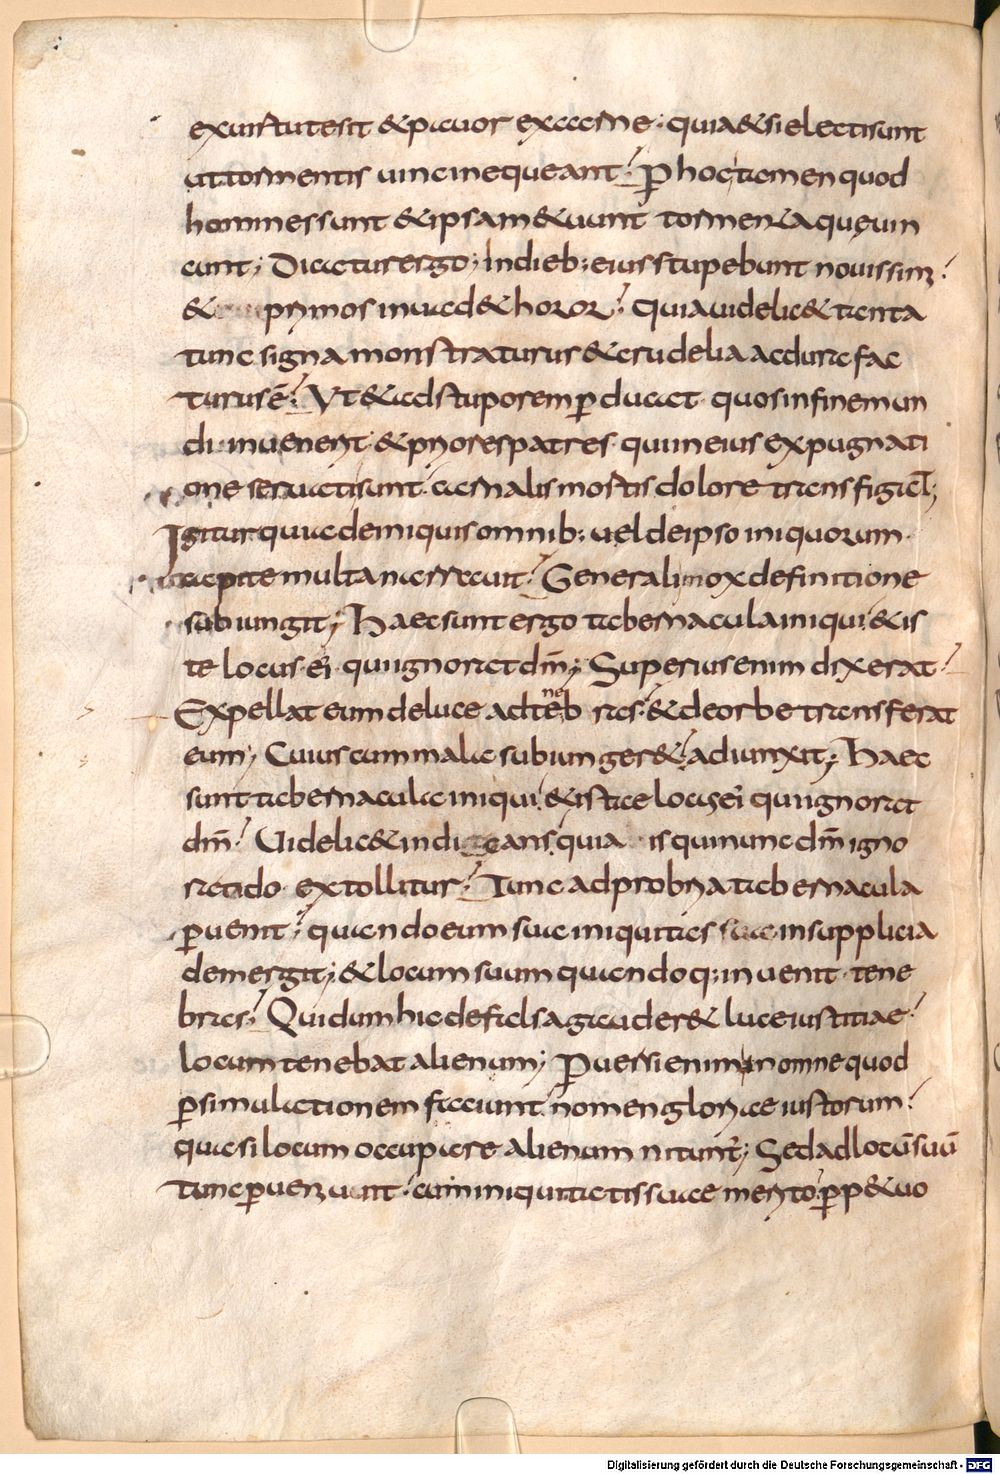 ex uirtute sit & pauor ex carne; quia & si electi sunt
ut tormentis uinci nequeant; p hoc tamen quod
homines sunt & ipsa m&uunt tormenta quę uin
cunt; Dicatur ergo; In dieb; eius stupebunt nouissimi
& primos inuad& horror; Quia uidelic& tanta
tunc signa monstraturus & crudelia ac dura fac
turus ē; Ut & ad stuporem pducat quos in fine mun
di inuenerit & priores patres qui in eius expugnati
one seruati sunt carnalis mortis dolore transfigat;
Igitur quia de iniquis omnib; uel de ipso iniquorum
capite multa narrauit; Generali mox definitione
subiungit; Haec sunt ergo tabernacula iniqui & is
te locus ei qui ignorat dm̄; Superius enim dixerat;
Expellat eum de luce ad teneb ras & de orbe transferat
eum; Cuius cum mala subiunger& adiunxit; Haec
sunt tabernacula iniqui & iste locus ei qui ignorat
dm̄; Uidelic& indicans quia is qui nunc dm̄ igno
rando extollitur; Tunc ad propria tabernacula
puenit; quando eum sua iniquitas in supplicia
demergit; & locum suum quandoq; inuenit tene
bras; Qui dum hic de falsa gauder& luce iustitiae;
locum tenebat alienum; Peruersi enim in omne quod
p simulationem faciunt nomen gloriae iustorum;
quasi locum occupare alienum nitunt̄; Sed ad locū suū
tunc peruerunt cum iniquitatis suae merito pp&uo